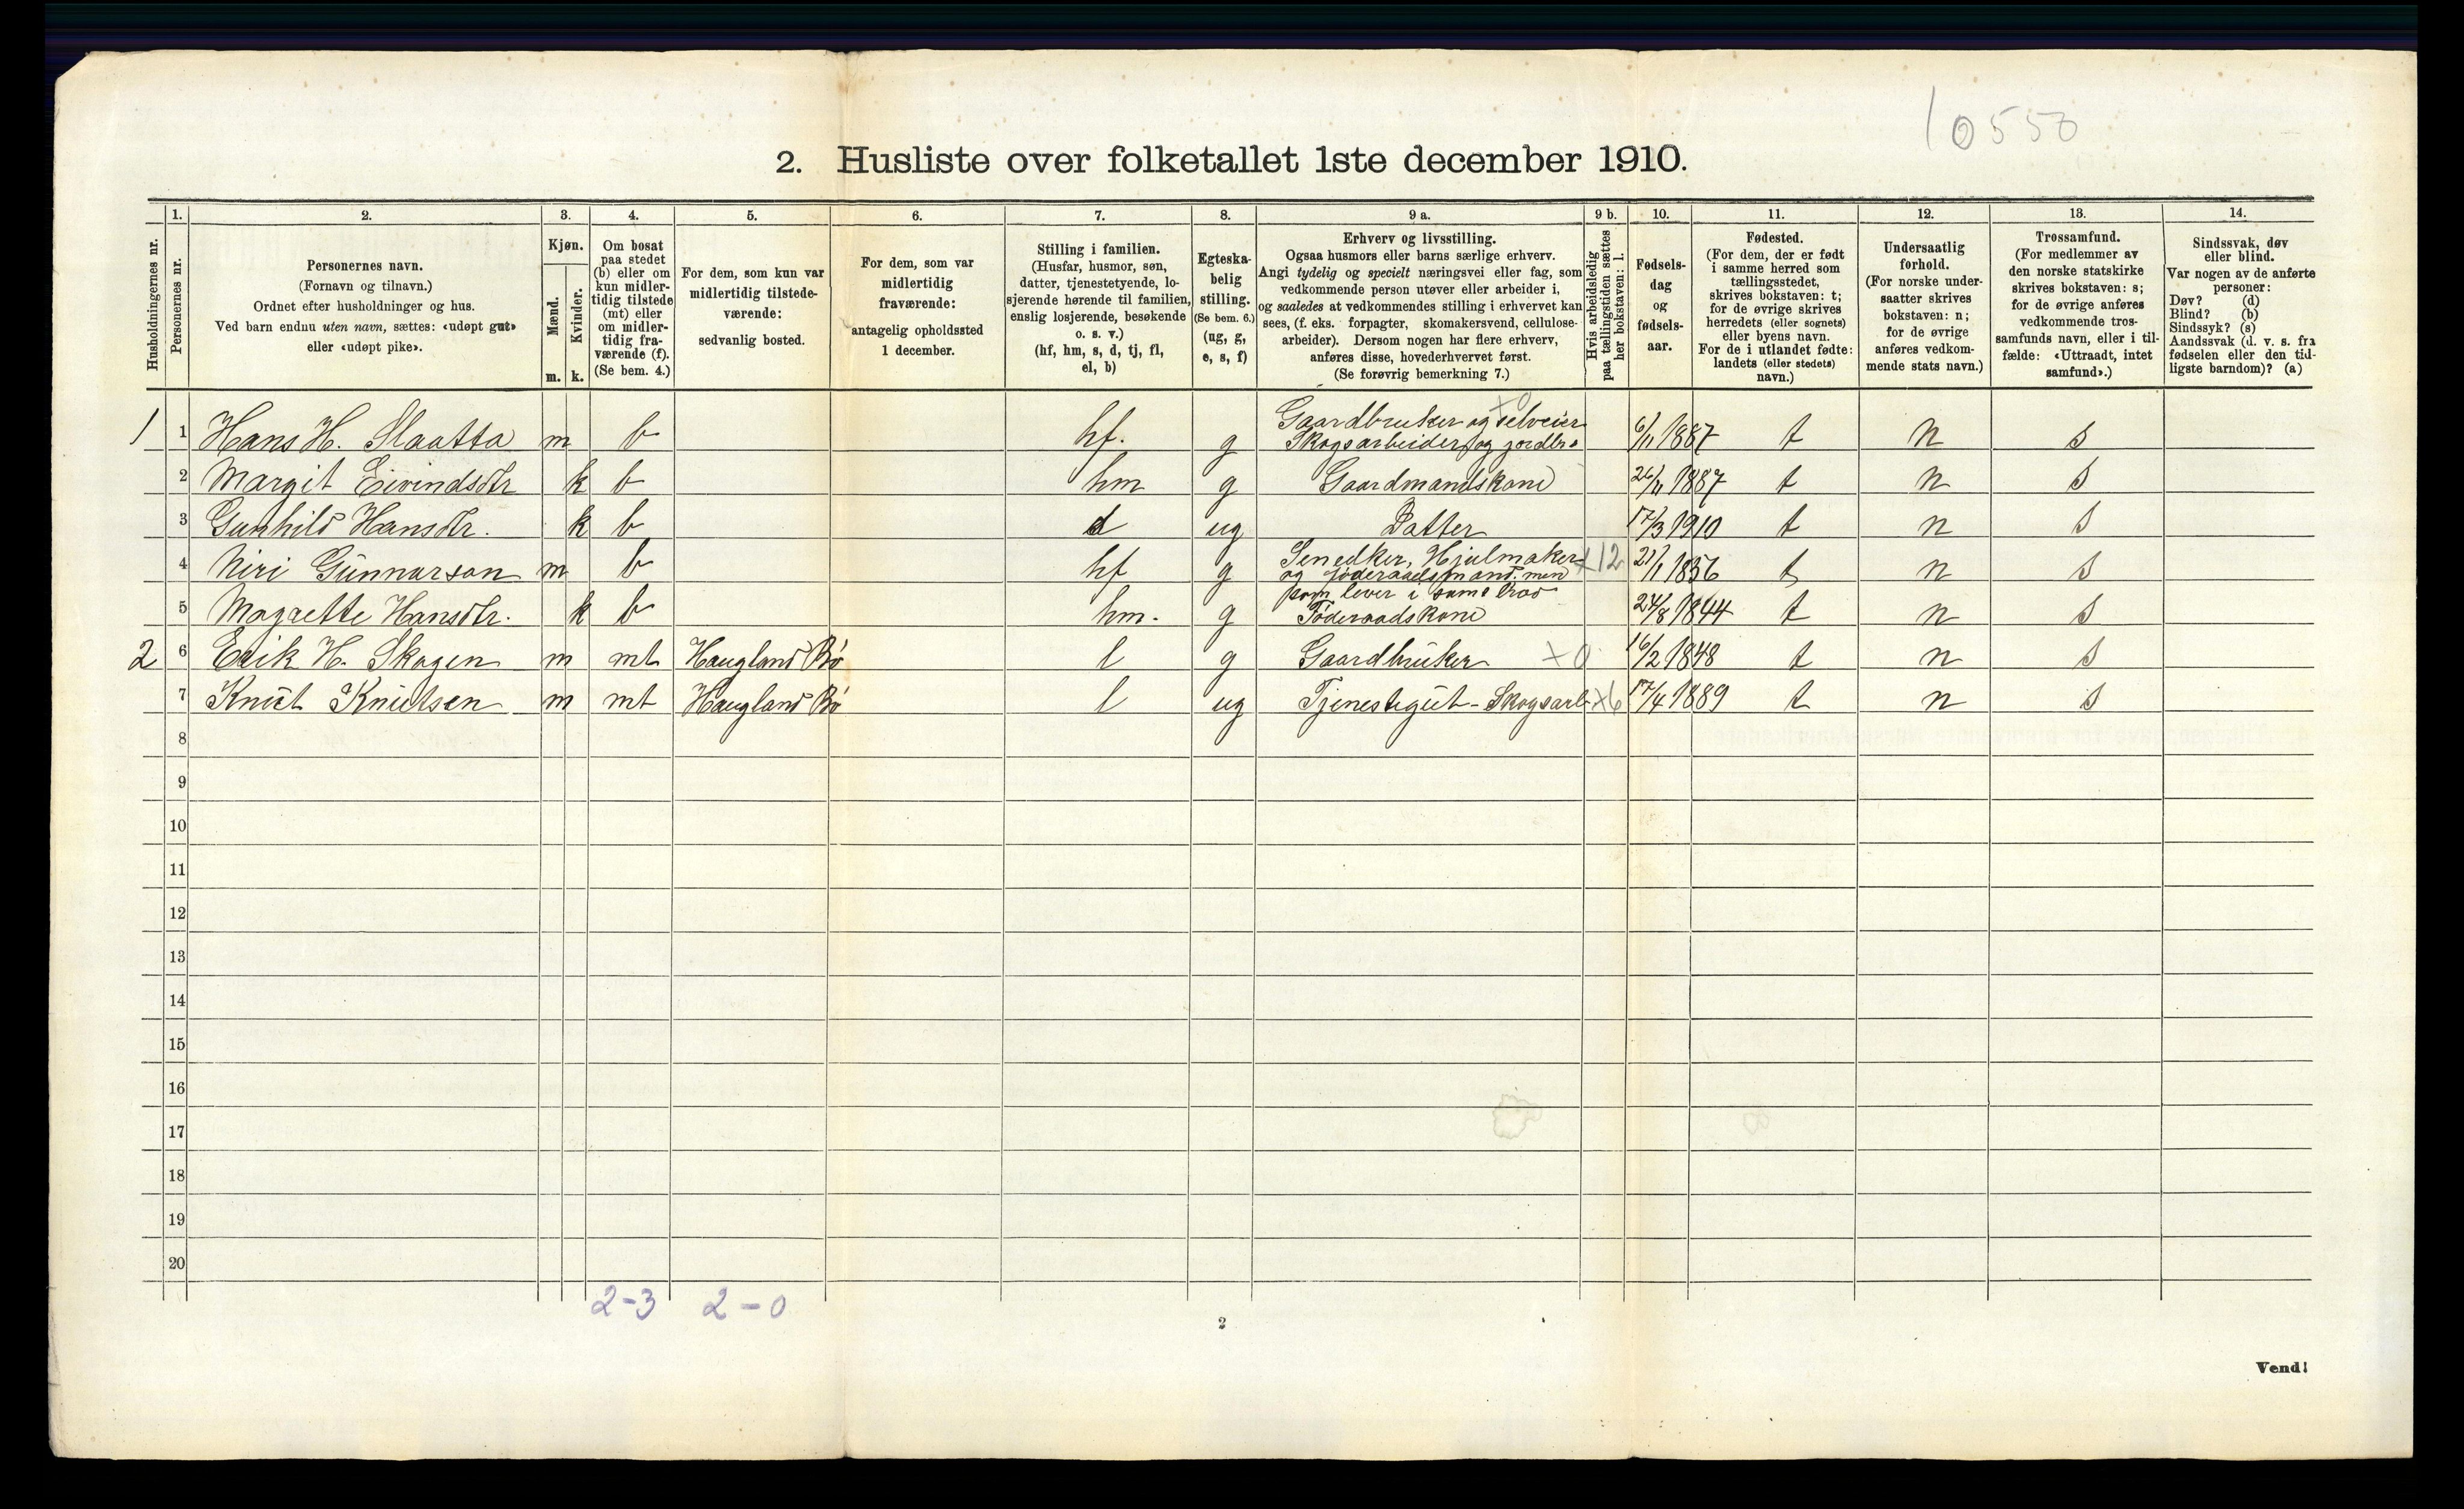 10550
2. Husliste over folketallet 1ste december 1910.
1. 2. 3. 4. 5. 6. 7. 8. 9 a. 9 b. 10. 11. 12. 13. 14.
Husholdningernes nr.
Personernes nr.
Personernes navn.
(Fornavn og tilnavn.)
Ordnet efter husholdninger og hus.
Ved barn endnu uten navn, sættes: «udøpt gut»
eller «udøpt pike».
Kjøn.
Mænd.
Kvinder.
m. k.
Om bosat
paa stedet
(b) eller om
kun midler-
tidig tilstede
(mt) eller
om midler-
tidig fra-
værende (f).
(Se bem. 4.)
For dem, som kun var
midlertidig tilstede-
værende:
sedvanlig bosted.
For dem, som var
midlertidig
fraværende:
antagelig opholdssted
1 december.
Stilling i familien.
(Husfar, husmor, søn,
datter, tjenestetyende, lo-
sjerende hørende til familien,
enslig losjerende, besøkende
o. s. v.)
(hf, hm, s, d, tj, fl,
el, b)
Egteska-
belig
stilling.
(Se bem. 6.)
(ug, g,
e, s, f)
Erhverv og livsstilling.
Ogsaa husmors eller barns særlige erhverv.
Angi tydelig og specielt næringsvei eller fag, som
vedkommende person utøver eller arbeider i,
og saaledes at vedkommendes stilling i erhvervet kan
sees, (f. eks. forpagter, skomakersvend, cellulose-
arbeider). Dersom nogen har flere erhverv,
anføres disse, hovederhvervet først.
(Se forøvrig bemerkning 7.)
Hvis arbeidsledig
paa tællingstiden sættes
her bokstaven: l.
Fødsels-
dag
og
fødsels-
aar.
Fødested.
(For dem, der er født
i samme herred som
tællingsstedet,
skrives bokstaven: t;
for de øvrige skrives
herredets (eller sognets)
eller byens navn.
For de i utlandet fødte:
landets (eller stedets)
navn.)
Undersaatlig
forhold.
(For norske under-
saatter skrives
bokstaven: n;
for de øvrige
anføres vedkom-
mende stats navn.)
Trossamfund.
(For medlemmer av
den norske statskirke
skrives bokstaven: s;
for de øvrige anføres
vedkommende tros-
samfunds navn, eller i til-
fælde: «Uttraadt, intet
samfund».)
Sindssvak, døv
eller blind.
Var nogen av de anførte
personer:
Døv? (d)
Blind? (b)
Sindssyk? (s)
Aandssvak (d. v. s. fra
fødselen eller den tid-
ligste barndom)? (a)
Gaardbruker og selveier +0
1 1 Hans H. Slaatta m b hf. g Skogsarbeider og jordbr. 6/11 1887 t n s
2 Margit Eivindsdtr k b hm g Gaardmandskone 26/11 1887 t n s
3 Gunhild Hansdtr. k b d ug Datter 17/3 1910 t n s
Snedker, Hjulmaker +12
4 Niri Gunnarson m b hf g og føderaadsmand. men 21/1 1856 t n s
som lever i samme Brød
5 Magrette Hansdtr. k b hm. g Føderaadskone 24/8 1844 t n s
2 6 Erik H. Skogen m mt Haugland Bø l g Gaardbruker +0 16/2 1848 t n s
7 Knut Knutsen m mt Haugland Bø l ug Tjenestegut - Skogsarb +6 17/4 1889 t n s
8
9
10
11
12
13
14
15
16
17
18
19
20
2-3 2-0
2
Vend!